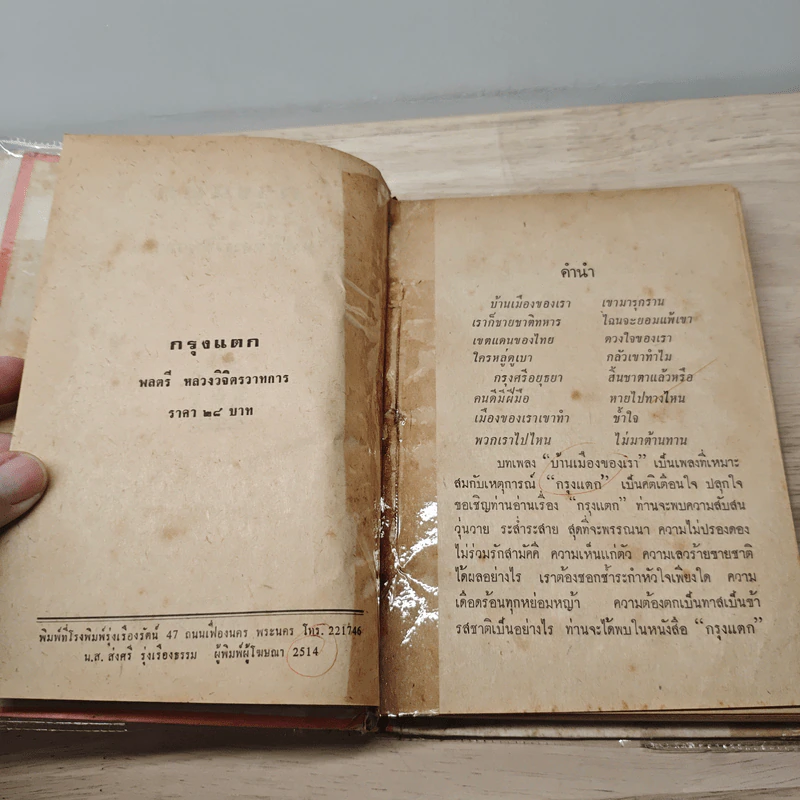 กรุงแตก
พลตรี หลวงวิจิตรวาทการ
ราคา ๒๘ บาท
พิมพ์ที่โรงพิมพ์รุ่งเรืองรัตน์ 47 ถนนเฟื่องนคร พระนคร โทร. 221746
น.ส. ส่งศรี รุ่งเรืองธรรม ผู้พิมพ์ผู้โฆษณา 2514
คำนำ
บ้านเมืองของเรา เขามารุกราน
เราก็ชายชาติทหาร ไฉนจะยอมแพ้เขา
เขตแดนของไทย ดวงใจของเรา
ใครหลู่ดูเบา กลัวเขาทำไม
กรุงศรีอยุธยา สิ้นชาตาแล้วหรือ
คนดีมีฝีมือ หายไปทางไหน
เมืองของเราเขาทำ ช้ำใจ
พวกเราไปไหน ไม่มาต้านทาน
บทเพลง “บ้านเมืองของเรา” เป็นเพลงที่เหมาะ
สมกับเหตุการณ์ “กรุงแตก” เป็นคติเตือนใจ ปลุกใจ
ขอเชิญท่านอ่านเรื่อง “กรุงแตก” ท่านจะพบความสับสน
วุ่นวาย ระส่ำระสาย สุดที่จะพรรณนา ความไม่ปรองดอง
ไม่ร่วมรักสามัคคี ความเห็นแก่ตัว ความเลวร้ายขายชาติ
ได้ผลอย่างไร เราต้องชอกช้ำระกำหัวใจเพียงใด ความ
เดือดร้อนทุกหย่อมหญ้า ความต้องตกเป็นทาสเป็นข้า
รสชาติเป็นอย่างไร ท่านจะได้พบในหนังสือ “กรุงแตก”